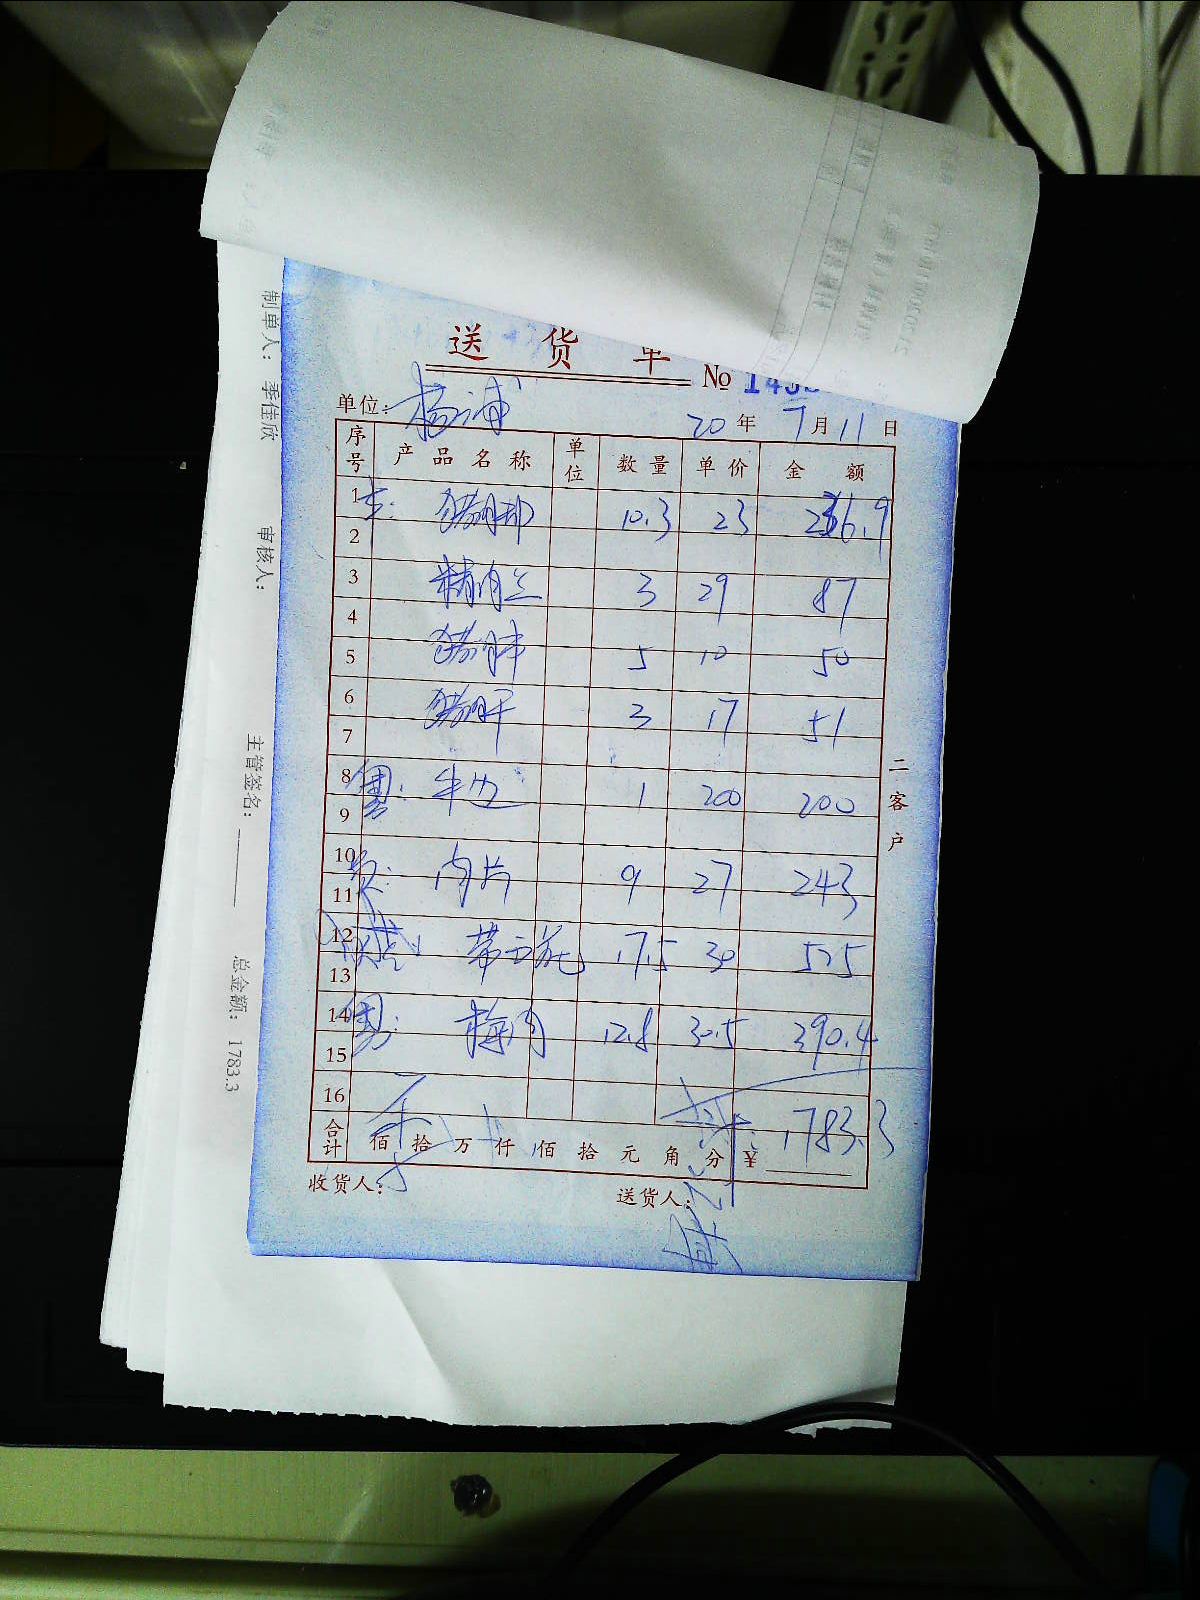 送货单
No 143
单位: 杨浦 20年7月11日
序号 产品名称 单位 数量 单价 金额
1 猪脚 10.3 23 236.9
2
3 精肉丝 3 29 87
4
5 猪肚 5 10 50
6 猪肝 3 17 51
7
8 牛边 1 200 200
9
10 肉片 9 27 243
11
12 17.5 30 525
13
14 梅肉 12.8 30.5 390.4
15
16
合计 佰拾万仟佰拾元角分 ¥ 1783.3
收货人: 送货人:
二客户
制单人: 季佳欣 审核人: 主管签名: 总金额: 1783.3